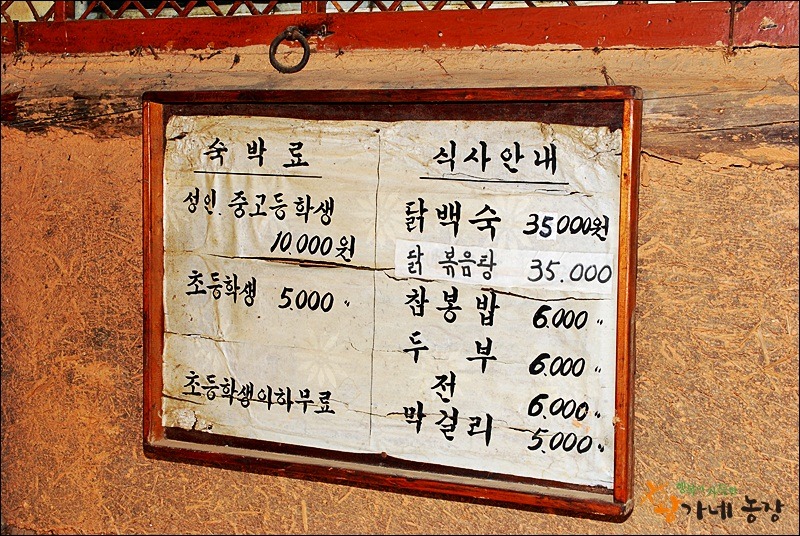 숙박료
성인. 중고등학생
10.000원
초등학생 5.000 〃
초등학생이하무료
식사안내
닭백숙 35.000원
닭 볶음탕 35.000
찹봉밥 6.000 〃
두부 6.000 〃
전 6.000 〃
막걸리 5.000 〃
가네 농장